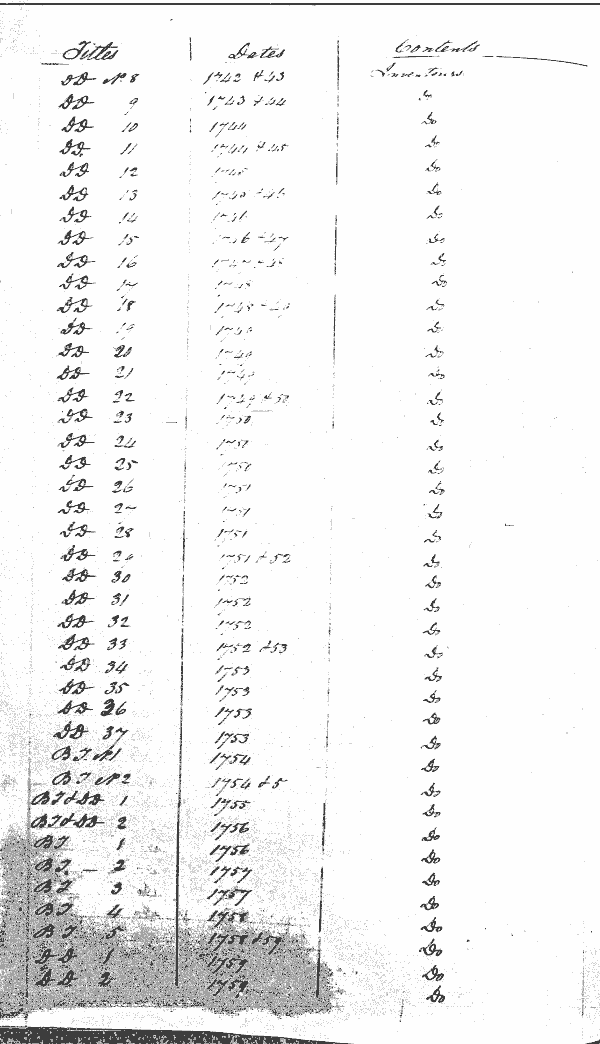 Titles Dates Contents
DD No 8 1742 & 43 Inventours
DD 9 1743 & 44 Do
DD 10 1744 Do
DD 11 1744 & 45 Do
DD 12 1745 Do
DD 13 1745 & 46 Do
DD 14 1746 Do
DD 15 1746 & 47 Do
DD 16 1747 & 48 Do
DD 17 1748 Do
DD 18 1748 & 49 Do
DD 19 1749 Do
DD 20 1749 Do
DD 21 1749 Do
DD 22 1749 & 50 Do
DD 23 1750 Do
DD 24 1751 Do
DD 25 1751 Do
DD 26 1751 Do
DD 27 1751 Do
DD 28 1751 Do
DD 29 1751 & 52 Do
DD 30 1752 Do
DD 31 1752 Do
DD 32 1752 Do
DD 33 1752 & 53 Do
DD 34 1753 Do
DD 35 1753 Do
DD 36 1753 Do
DD 37 1753 Do
BT No 1 1754 Do
BT No 2 1754 & 5 Do
BT & DD 1 1755 Do
BT & DD 2 1756 Do
BT 1 1756 Do
BT 2 1757 Do
BT 3 1757 Do
BT 4 1758 Do
BT 5 1758 & 59 Do
DD 1 1759 Do
DD 2 1759 Do